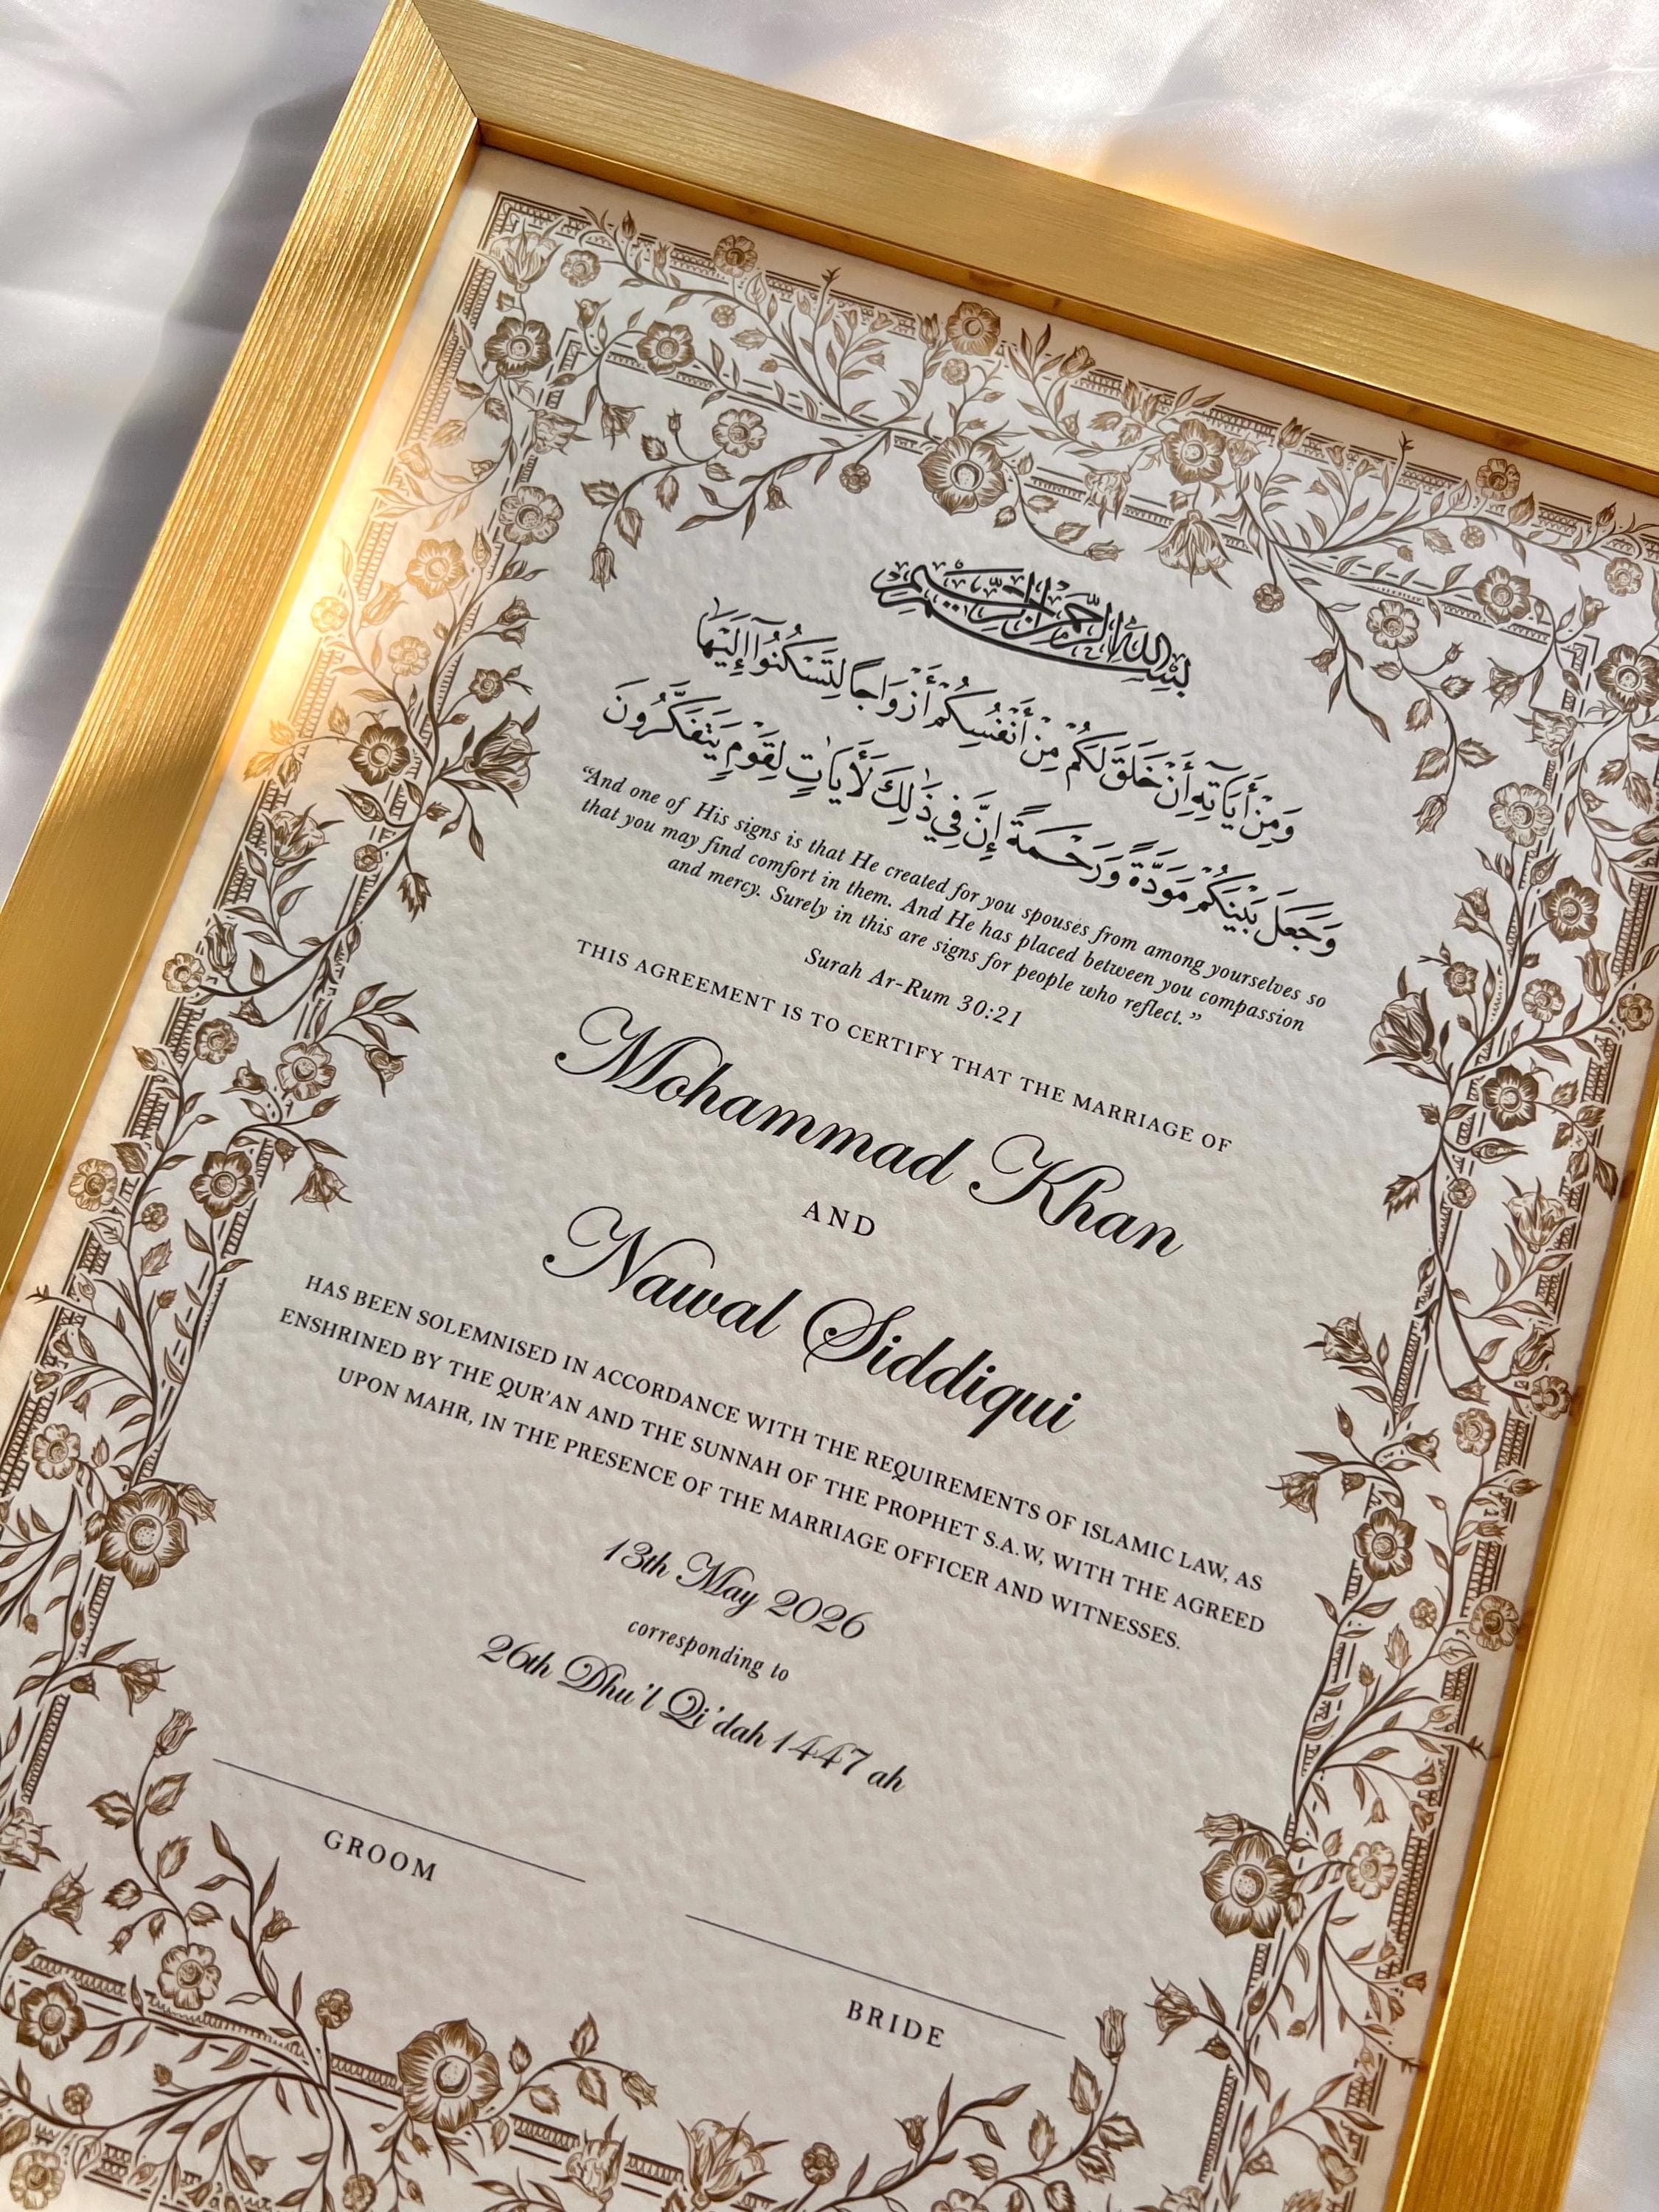 بسم الله الرحمن الرحيم
وَمِنْ أَيَاتِهِ أَنْ خَلَقَ لَكُمْ مِنْ أَنْفُسِكُمْ أَزْوَاجًا لِتَسْكُنُوا إِلَيْهَا
وَجَعَلَ بَيْنَكُمْ مَوَدَّةً وَرَحْمَةً إِنَّ فِي ذَٰلِكَ لَأَيَاتٍ لِقَوْمٍ يَتَفَكَّرُونَ
“And one of His signs is that He created for you spouses from among yourselves so
that you may find comfort in them. And He has placed between you compassion
and mercy. Surely in this are signs for people who reflect.”
Surah Ar-Rum 30:21
THIS AGREEMENT IS TO CERTIFY THAT THE MARRIAGE OF
Mohammad Khan
AND
Nawal Siddiqui
HAS BEEN SOLEMNISED IN ACCORDANCE WITH THE REQUIREMENTS OF ISLAMIC LAW, AS
ENSHRINED BY THE QUR'AN AND THE SUNNAH OF THE PROPHET S.A.W, WITH THE AGREED
UPON MAHR, IN THE PRESENCE OF THE MARRIAGE OFFICER AND WITNESSES.
13th May 2026
corresponding to
26th Dhu'l Qi'dah 1447 ah
GROOM
BRIDE